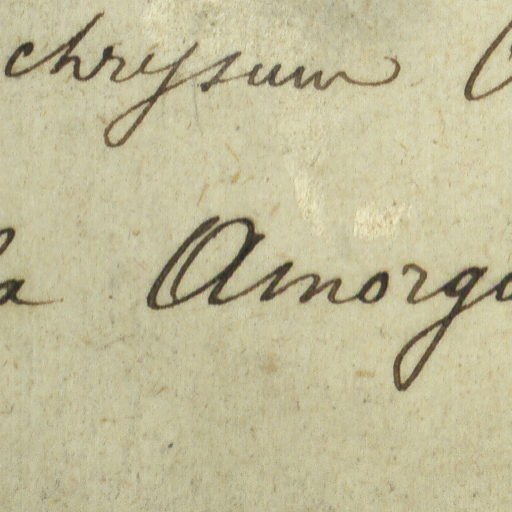 chrysum
a Amorgo